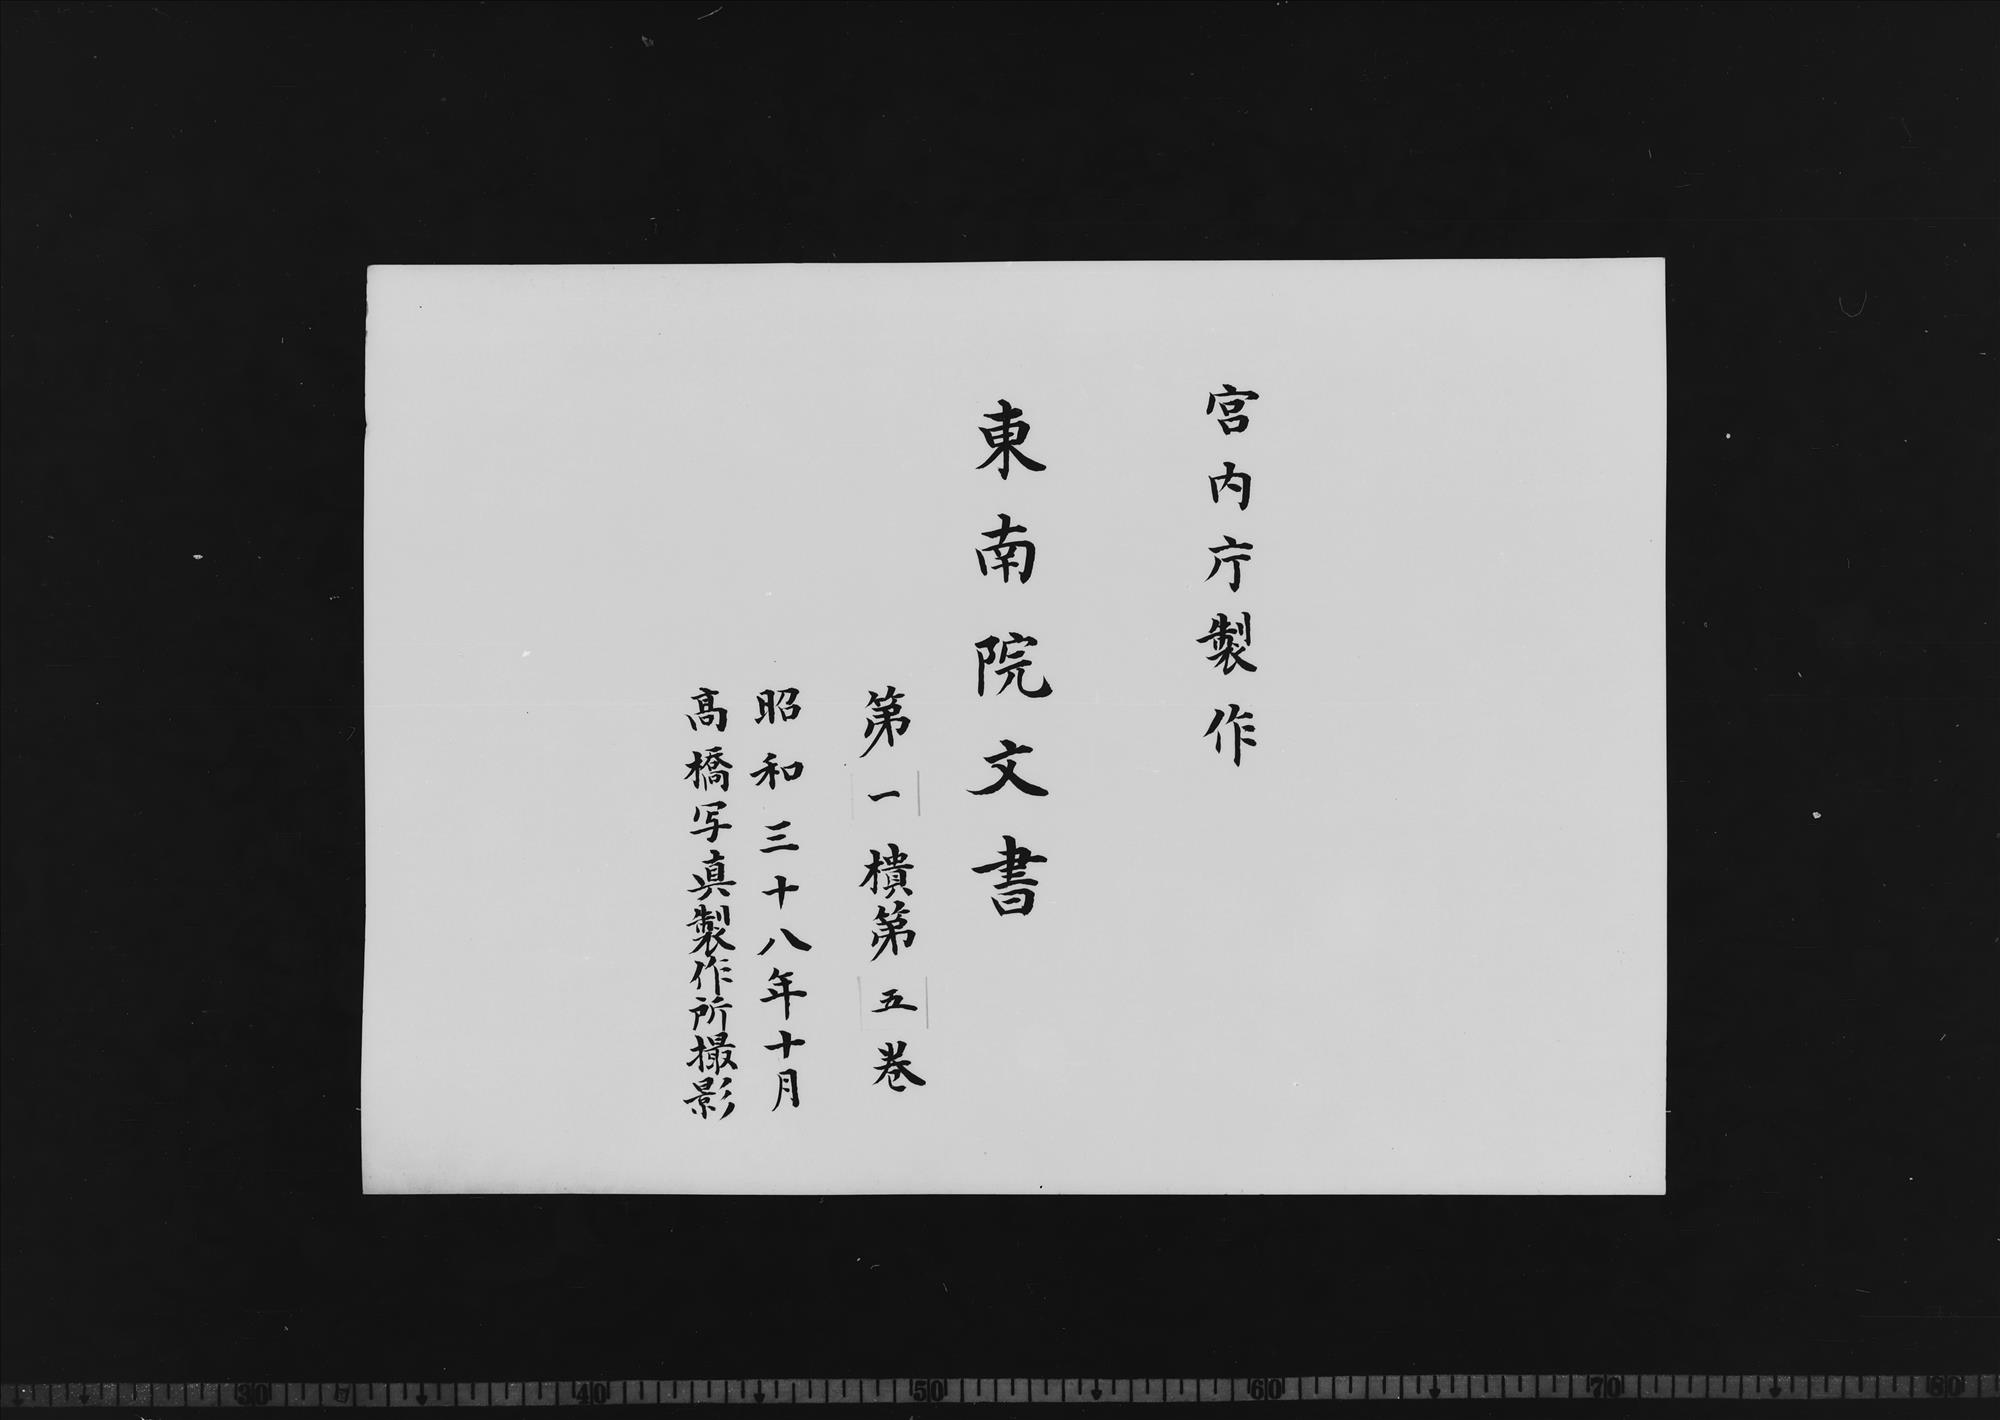 宮内庁製作
東南院文書
第一櫃第五巻
昭和三十八年十月
髙橋写眞製作所撮影
30 40 50 60 70 80